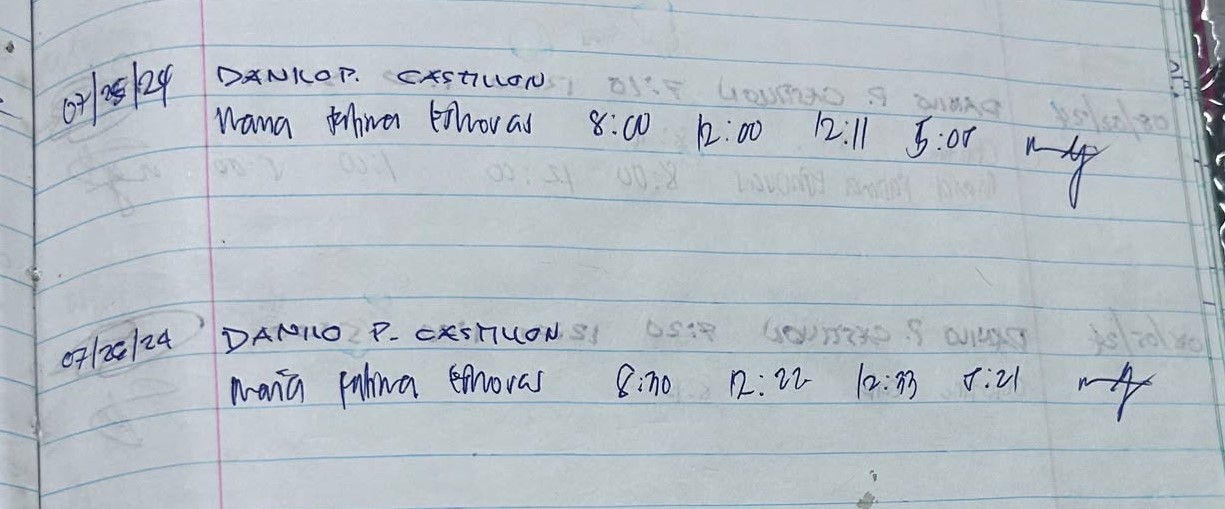 07/25/24 DANILO P. CASTILLON
Maria Fatima 8:00 12:00 12:11 5:05
07/26/24 DANILO P. CASTILLON
Maria Fatima 8:30 12:22 12:33 5:21